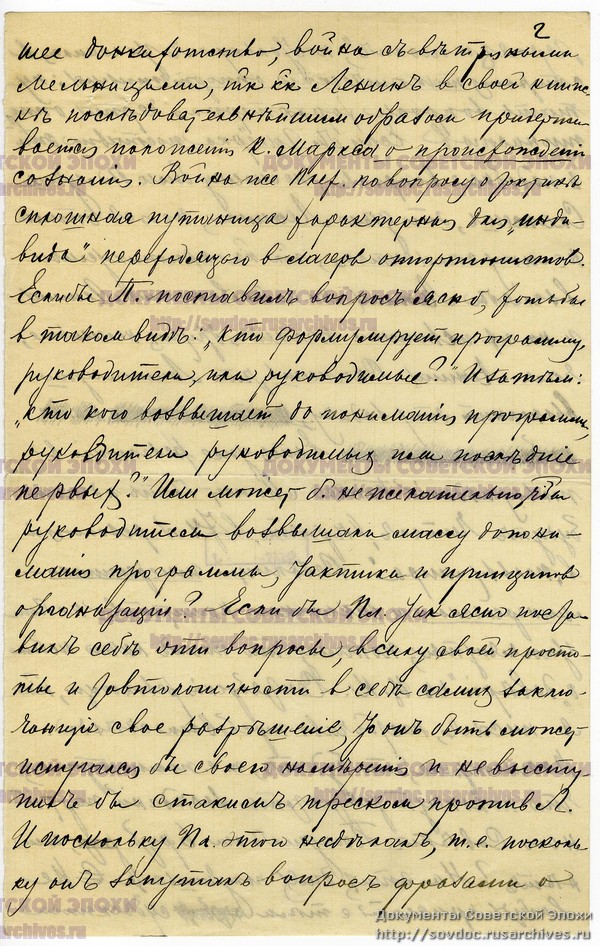 2
шее донкихотство, война съ вѣтряными
мельницами, тк кк Ленинъ в своей книж-
кѣ послѣдовательнѣйшим образом придержи-
вается положенія К. Маркса о происхожденіи
сознанія. Война же Плех. по вопросу о тактикѣ
сплошная путаница характерная для „инди-
вида“ переходящаго в лагерь оппортюнистов.
Еслибы П. поставилъ вопросъ ясно, хотьбы
в таком видѣ: „кто формулирует программу,
руководители или руководимые?“ И затѣм:
„кто кого возвышает до пониманія программы,
руководители руководимых или послѣдніе
первых?“ Или может б. нежелательно чтбы
руководители возвышали массу до пони-
манія программы, тактики и принципов
организаціи? Если бы Пл. так ясно поста-
вилъ себѣ эти вопросы, в силу своей просто-
ты и тавтологичности в себѣ самих заклю-
чающіе свое разрѣшеніе, то онъ быть может
испугался бы своего намѣренія и не высту-
пилъ бы с таким треском против Л.
И поскольку Пл. этого не сдѣлалъ, т.е. посколь-
ку онъ запуталъ вопросъ фразами о
Документы Советской Эпохи
http://sovdoc.rusarchives.ru